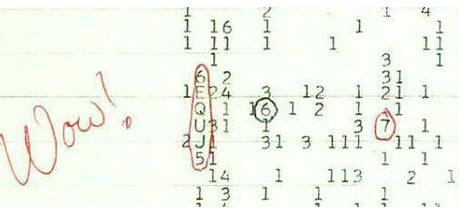 1 2 1 4
1 16 1 1 1
1 11 1 1 11
1 3 1
6 2 31
1 E 24 3 12 1 21 1
Q 1 16 1 2 1 1 1
U 31 1 3 7 1
2 J 1 31 3 111 11 1
5 1 1 1
14 1 113 2 1
1 3 1 1 1
Wow!